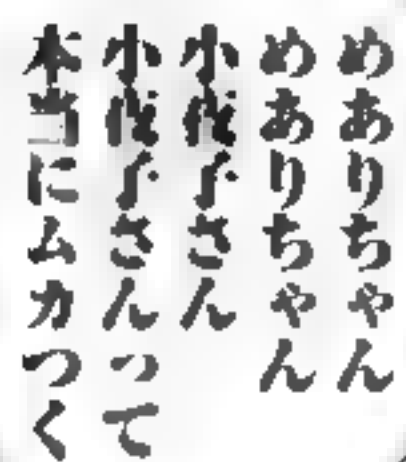 めありちゃん
めありちゃん
さん
さんって
本当にムカつく